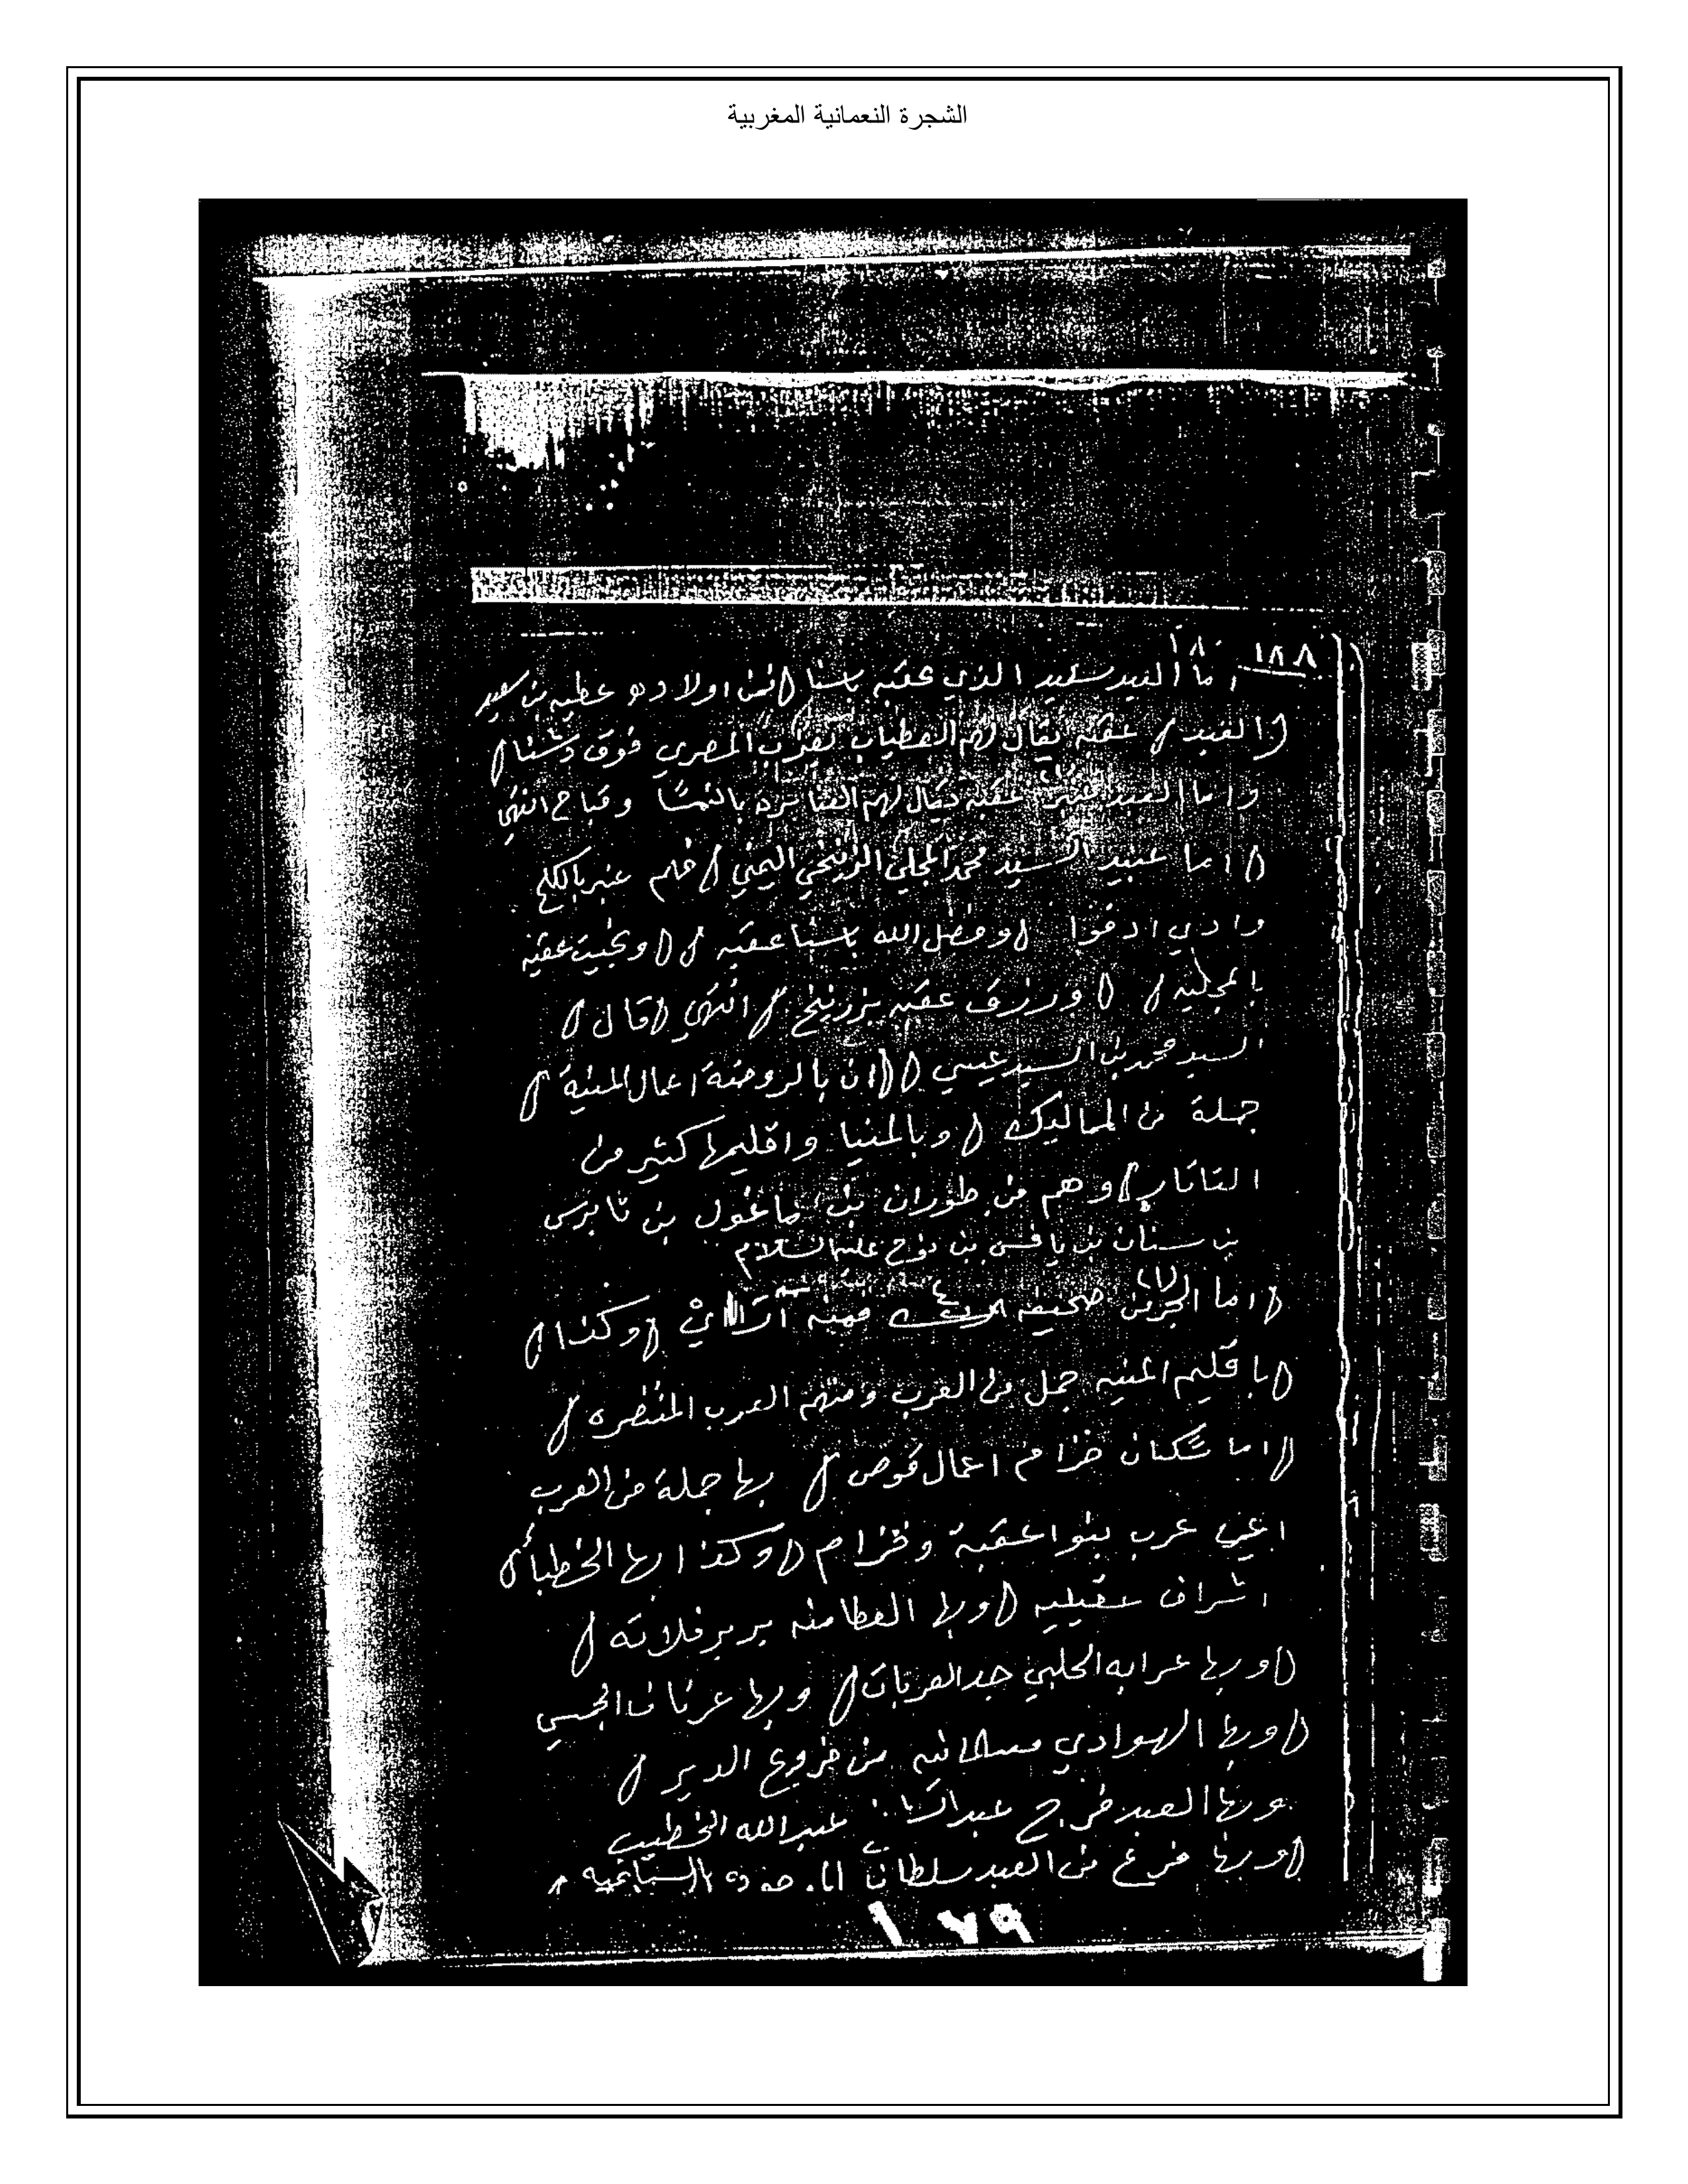 الشجرة النعمانية المغربية
١٨٨
اما العبد سعيد الذي عقبه باسنا اولاده عطيه بن سعيد
العبد عقبه يقال لهم العطياب بعزب المصري فوق دشنا
واما العبد عنبر عقبه يقال لهم العنابره بالنمسا وقباح انتهى
اما عبيد السيد محمد المجلي الزرنيخي اليمني فلهم عنبر بالكلح
وادي ادفوا وفضل الله باسنا عقبه وبخيت عقبه
بالمجلية ورزق عقبه بزرنيخ انتهى قال
السيد محمد بن السيد عيسي ان بالروضة اعمال المنية
جملة من المماليك وبالمنيا واقليمها كثير من
التاتار وهم من طوران بن ماغول بن
بن سنان بن يافس بن نوح عليه السلام
اما صحيفه وكذا
باقليم المنيه جمل من العرب ومنهم العرب المتنصره
اما سكان خزام اعمال قوص بها جملة من العرب
اعني عرب بنوا عقبة وخزام وكذا بها الخطبا
اشراف عقيليه وبها العطامنه بربر فلاته
وبها عرابه الحلبي جد العربات وبها عرنان
وبها الهوادي من فروع الدير
وبها العبد فرج عبد عبد الله الخطيب
وبها فرع من العبد سلطان
١٧٩